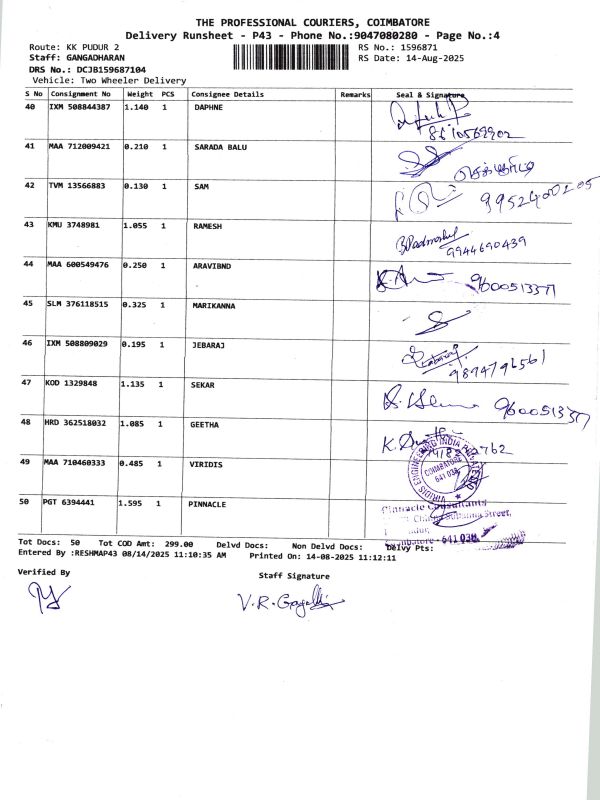 THE PROFESSIONAL COURIERS, COIMBATORE
Delivery Runsheet - P43 - Phone No.:9047080280 - Page No.:4
Route: KK PUDUR 2 RS No.: 1596871
Staff: GANGADHARAN RS Date: 14-Aug-2025
DRS No.: DCJB159687104
Vehicle: Two Wheeler Delivery
S No Consignment No Weight PCS Consignee Details Remarks Seal & Signature
40 IXM 508844387 1.140 1 DAPHNE
8610569902
41 MAA 712009421 0.210 1 SARADA BALU
42 TVM 13566883 0.130 1 SAM
9952400205
43 KMU 3748981 1.055 1 RAMESH
9944690439
44 MAA 600549476 0.250 1 ARAVIBND 9600513377
45 SLM 376118515 0.325 1 MARIKANNA
46 IXM 508809029 0.195 1 JEBARAJ
9894796561
47 KOD 1329848 1.135 1 SEKAR 9600513377
48 HRD 362518032 1.085 1 GEETHA
49 MAA 710460333 0.485 1 VIRIDIS
VIRIDIS ENGINEERING INDIA PRIVATE LIMITED
COIMBATORE
641 038
50 PGT 6394441 1.595 1 PINNACLE
Pinnacle Consultants
Street,
641 038
Tot Docs: 50 Tot COD Amt: 299.00 Delvd Docs: Non Delvd Docs: Delvy Pts:
Entered By :RESHMAP43 08/14/2025 11:10:35 AM Printed On: 14-08-2025 11:12:11
Verified By
Staff Signature